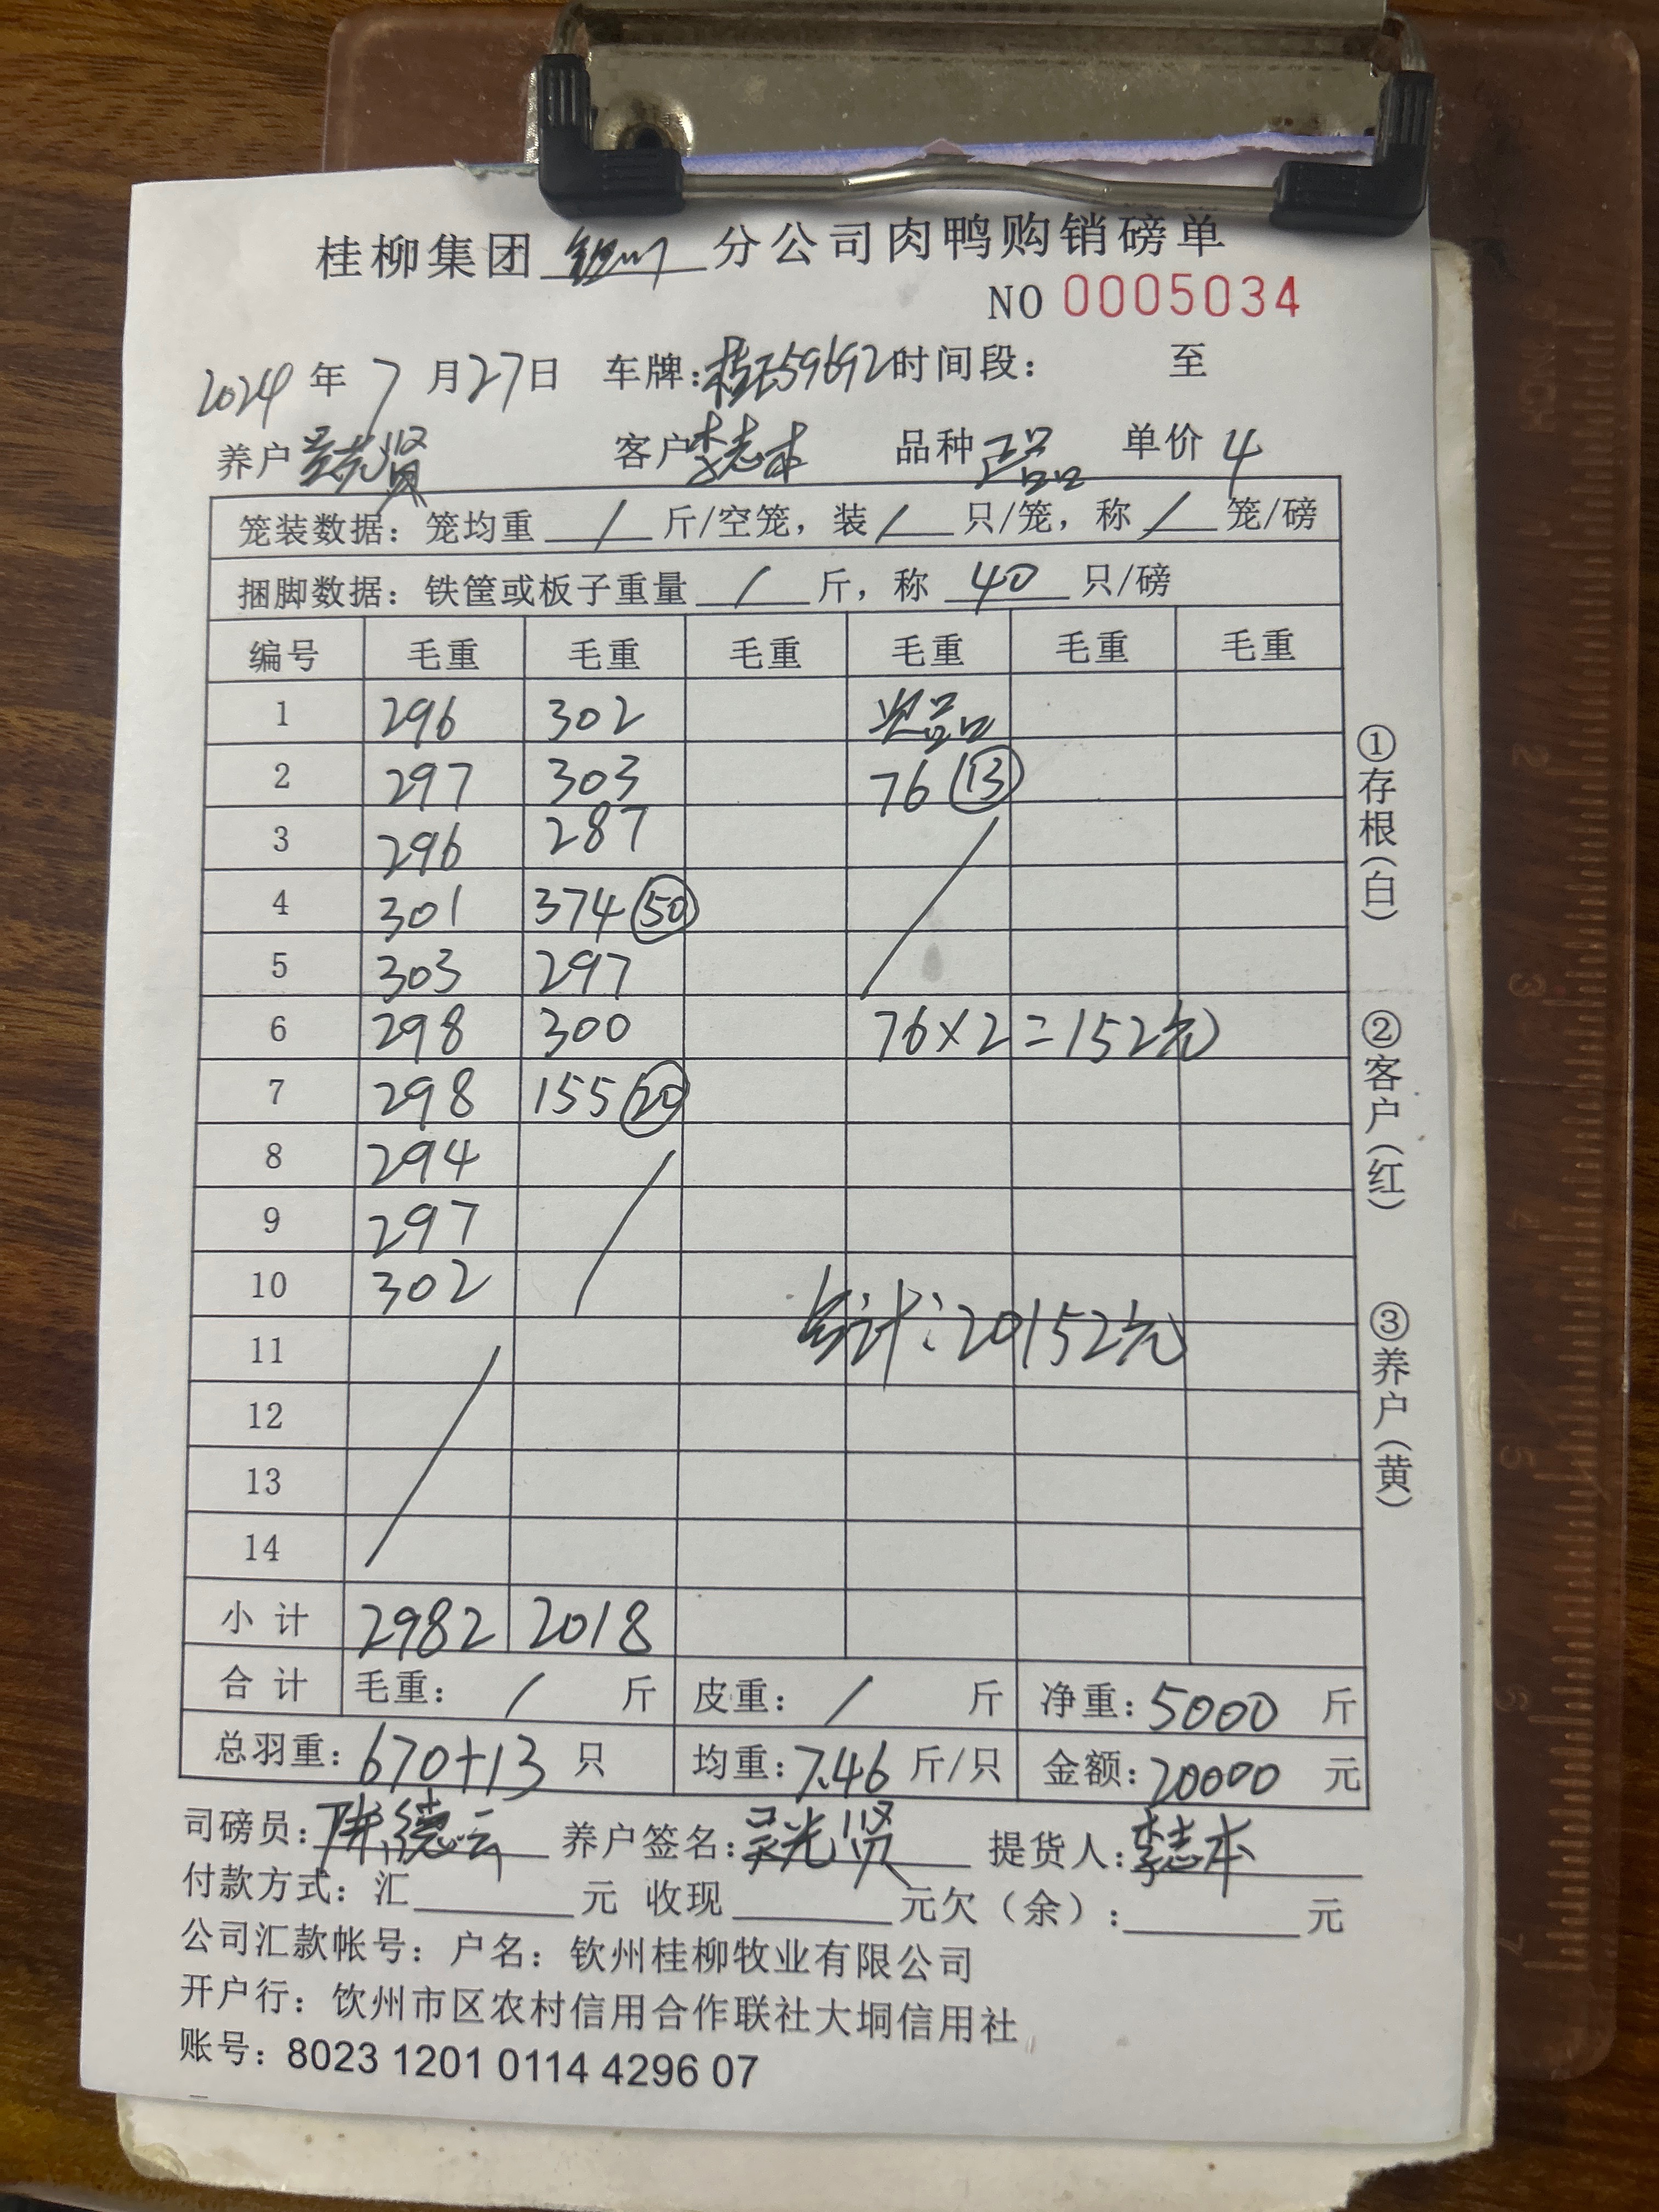 桂柳集团 钦州 分公司肉鸭购销磅单
NO 0005034
2024 年 7 月 27 日 车牌: 桂E59692 时间段: 至
养户 吴光贤 客户 李志本 品种 正品 单价 4
笼装数据: 笼均重 / 斤/空笼, 装 / 只/笼, 称 / 笼/磅
捆脚数据: 铁筐或板子重量 / 斤, 称 40 只/磅
编号 毛重 毛重 毛重 毛重 毛重 毛重
1 296 302 次品
2 297 303 76 (13)
3 296 287
4 301 374 (50)
5 303 297
6 298 300 76×2=152元
7 298 155 (20)
8 294
9 297
10 302 总计:20152元
11
12
13
14
小计 2982 2018
合计 毛重: / 斤 皮重: / 斤 净重: 5000 斤
总羽重: 670+13 只 均重: 7.46 斤/只 金额: 20000 元
司磅员: 陈德云 养户签名: 吴光贤 提货人: 李志本
付款方式: 汇 元 收现 元欠（余）: 元
公司汇款帐号: 户名: 钦州桂柳牧业有限公司
开户行: 钦州市区农村信用合作联社大垌信用社
账号: 8023 1201 0114 4296 07
①存根(白)
②客户(红)
③养户(黄)